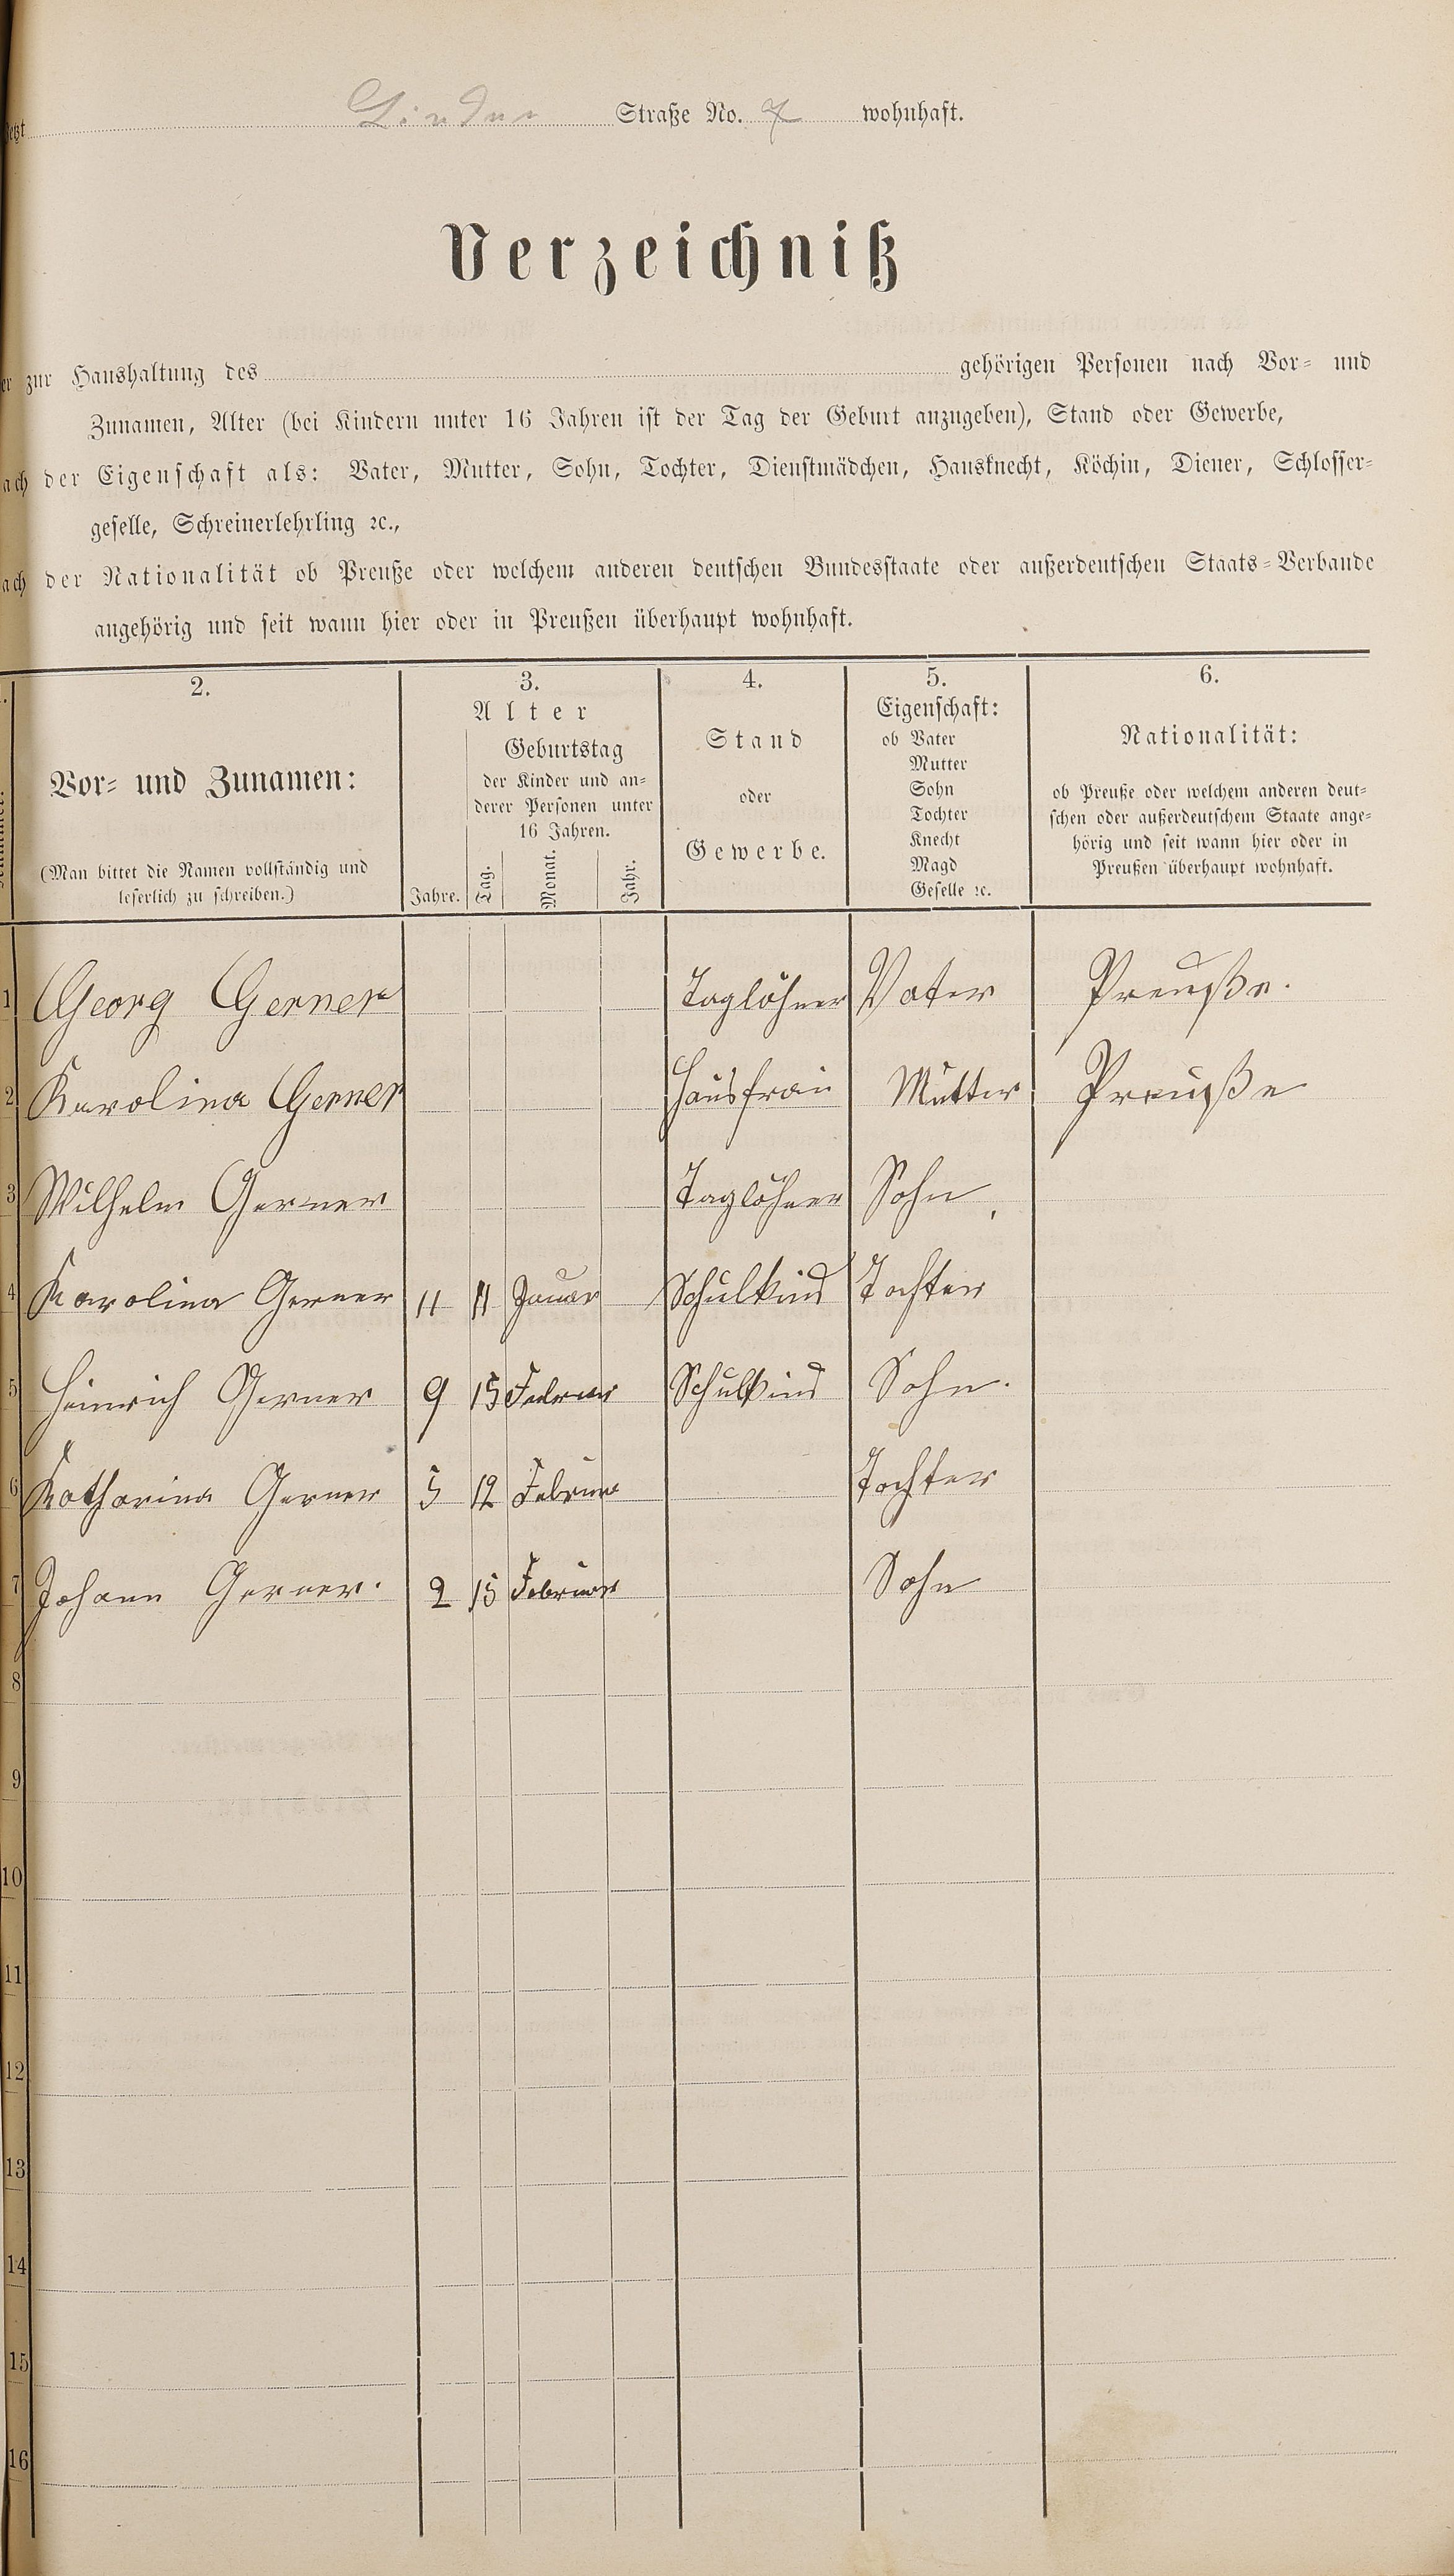 Linden Straße No. 7 wohnhaft.
Verzeichniß
zur Haushaltung des gehörigen Personen nach Vor- und
Zunamen, Alter (bei Kindern unter 16 Jahren ist der Tag der Geburt anzugeben), Stand oder Gewerbe,
der Eigenschaft als: Vater, Mutter, Sohn, Tochter, Dienstmädchen, Hausknecht, Köchin, Diener, Schlosser-
geselle, Schreinerlehrling ꝛc.,
der Nationalität ob Preuße oder welchem anderen deutschen Bundesstaate oder außerdeutschen Staats-Verbande
angehörig und seit wann hier oder in Preußen überhaupt wohnhaft.
2.
Vor- und Zunamen:
(Man bittet die Namen vollständig und
leserlich zu schreiben.)
3.
Alter
Jahre.
Geburtstag
der Kinder und an-
derer Personen unter
16 Jahren.
Tag.
Monat.
Jahr.
4.
Stand
oder
Gewerbe.
5.
Eigenschaft:
ob Vater
Mutter
Sohn
Tochter
Knecht
Magd
Geselle ꝛc.
6.
Nationalität:
ob Preuße oder welchem anderen deut-
schen oder außerdeutschem Staate ange-
hörig und seit wann hier oder in
Preußen überhaupt wohnhaft.
1 Georg Gerner Taglöhner Vater Preuße.
2 Karolina Gerner Hausfrau Mutter Preuße
3 Wilhelm Gerner Taglöhner Sohn
4 Karolina Gerner 11 11 Januar Schulkind Tochter
5 Heinrich Gerner 9 15 Februar Schulkind Sohn.
6 Katharina Gerner 5 12 Februar Tochter
7 Johann Gerner. 2 15 Februar Sohn
8
9
10
11
12
13
14
15
16